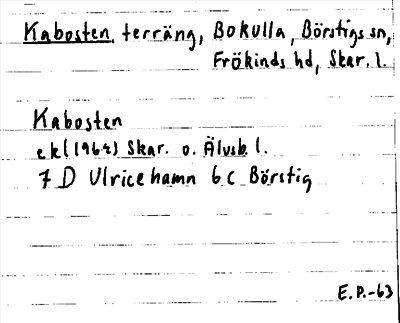 Kabosten, terräng, Bokulla, Börstigs sn,
Frökinds hd, Skar. l.
Kabosten
ekl (1962) Skar. o. Älvsb. l.
7 D Ulricehamn 6 c Börstig
E.P.-63